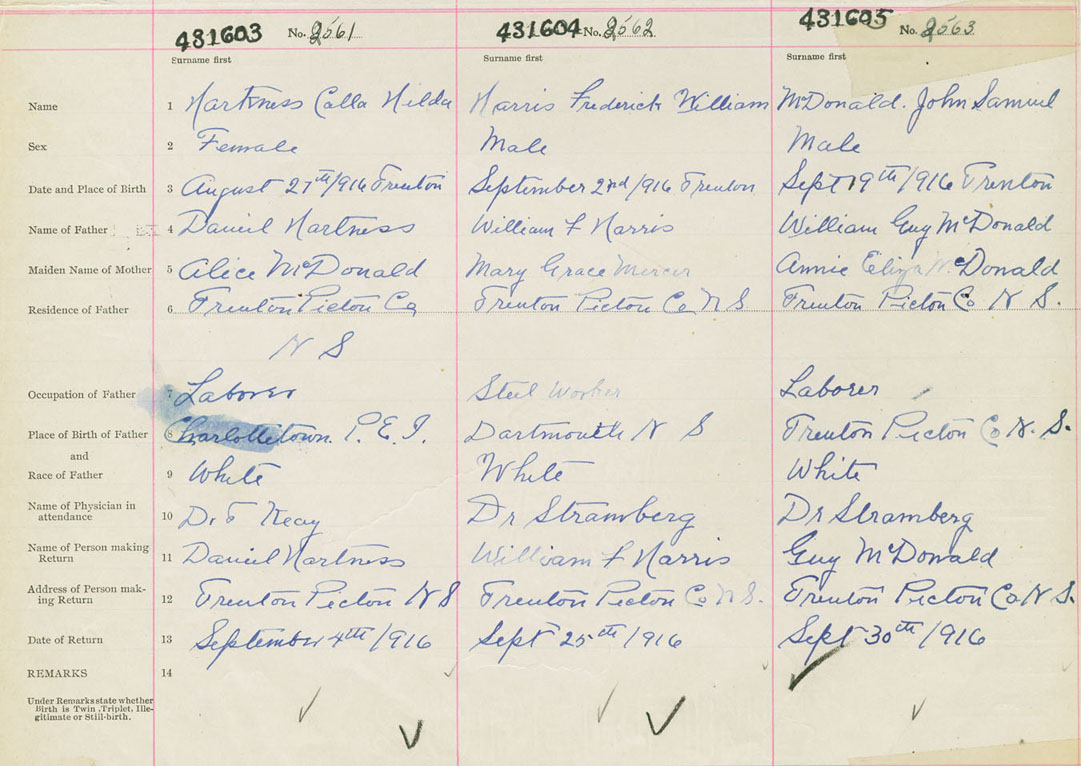 431603 No. 2561 431604 No. 2562 431605 No. 2563
Surname first Surname first Surname first
Name 1 Harkness Calla Hilda Harris Frederick William McDonald. John Samuel
Sex 2 Female Male Male
Date and Place of Birth 3 August 27th/916 Trenton September 2nd/916 Trenton Sept 19th/916 Trenton
Name of Father 4 Daniel Hartness William F Harris William Guy McDonald
Maiden Name of Mother 5 Alice McDonald Mary Grace Mercer Annie Eliza McDonald
Residence of Father 6 Trenton Pictou Co Trenton Pictou Co N S Trenton Pictou Co N S.
N S
Occupation of Father 7 Laborer Steel Worker Laborer
Place of Birth of Father 8 Charlottetown. P.E.I. Dartmouth N S Trenton Pictou Co N. S.
and
Race of Father 9 White White White
Name of Physician in
attendance 10 Dr F Keay Dr Stramberg Dr Stramberg
Name of Person making
Return 11 Daniel Hartness William F Harris Guy McDonald
Address of Person mak-
ing Return 12 Trenton Pictou N S Trenton Pictou Co N S. Trenton Pictou Co N S.
Date of Return 13 September 4th/916 Sept 25th/916 Sept 30th/916
REMARKS 14
Under Remarks state whether
Birth is Twin, Triplet, Ille-
gitimate or Still-birth.